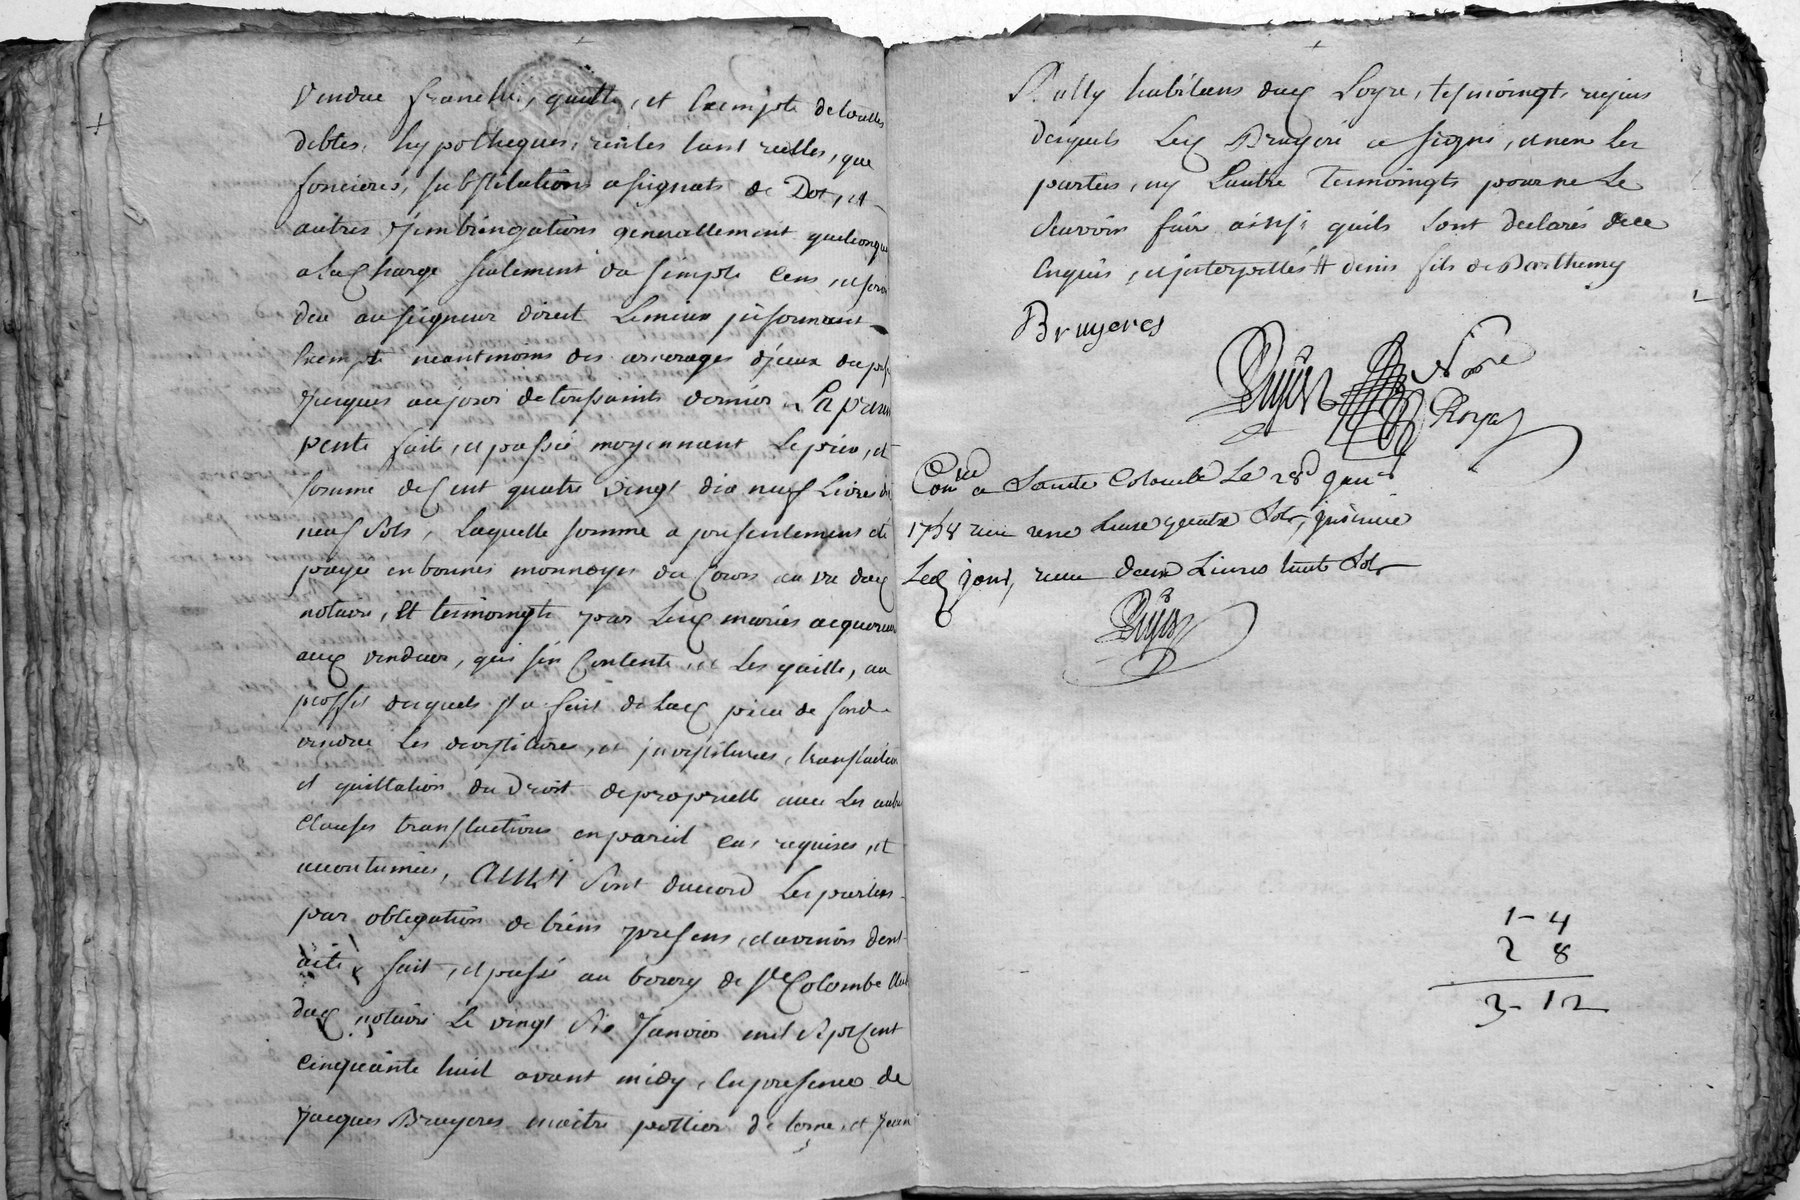 vendue franche, quitte, et Exempte de touttes
debtes, hypotheques, rentes tant reelles, que
foncieres, substitutions assignats de Dot, et
autres Jmbringations generallement quelconque
a la Charge seulement du simple Cens, et servis
deu au seigneur direct Lemieux jnformant
Exempt neantmoins des arrerages djceux du passé
Jusques au jour de toussaints dernier, La pnte
vente faite, et passée moyennant Le prix, et
somme de Cent quatre vingt dix neuf Livres dix
neuf sols, Laquelle somme a presentement été
payée en bonnes monnoyes du Cours au vu dud
notaire, Et temoingts par Lesd mariés acquereurs
auxd vendeurs, qui s'en Contente, et Les quitte, au
proffit desquels Jl a fait de Lad piece de fond
vendue Les devestitures, et jnvestitures, translation
et quittation du Droit de proprieté avec Les autres
Clauses translatives en pareil Cas requises, et
accoutumées, AINSI sont d'accord Les parties
par obligation de biens presens, et avenir dont
acte, fait, et passé au bourg de Ste Colombe Etude
dud notaire Le vingt six Janvier mil sept Cent
cinquante huit avant midy, En presence de
Jacques Bruyeres maitre pottier de terre, et Jean
Rally habitans dud Loyre, tesmoingts requis
desquels Led Bruyere a signé, et non Les
parties, ny L'autre Temoingts pour ne Le
sçavoir faire ainsi quils l'ont declaré de ce
Enquis, et jnterpellés # denis fils de Barthemy
Bruyeres
Notre
Royal
Conlé a Sainte Colombe Le 28 Janer
1758 reçu une Livre quatre sols, jnsinué
Led jour, reçu deux Livres huit sols
1 - 4
2 8
3 - 12